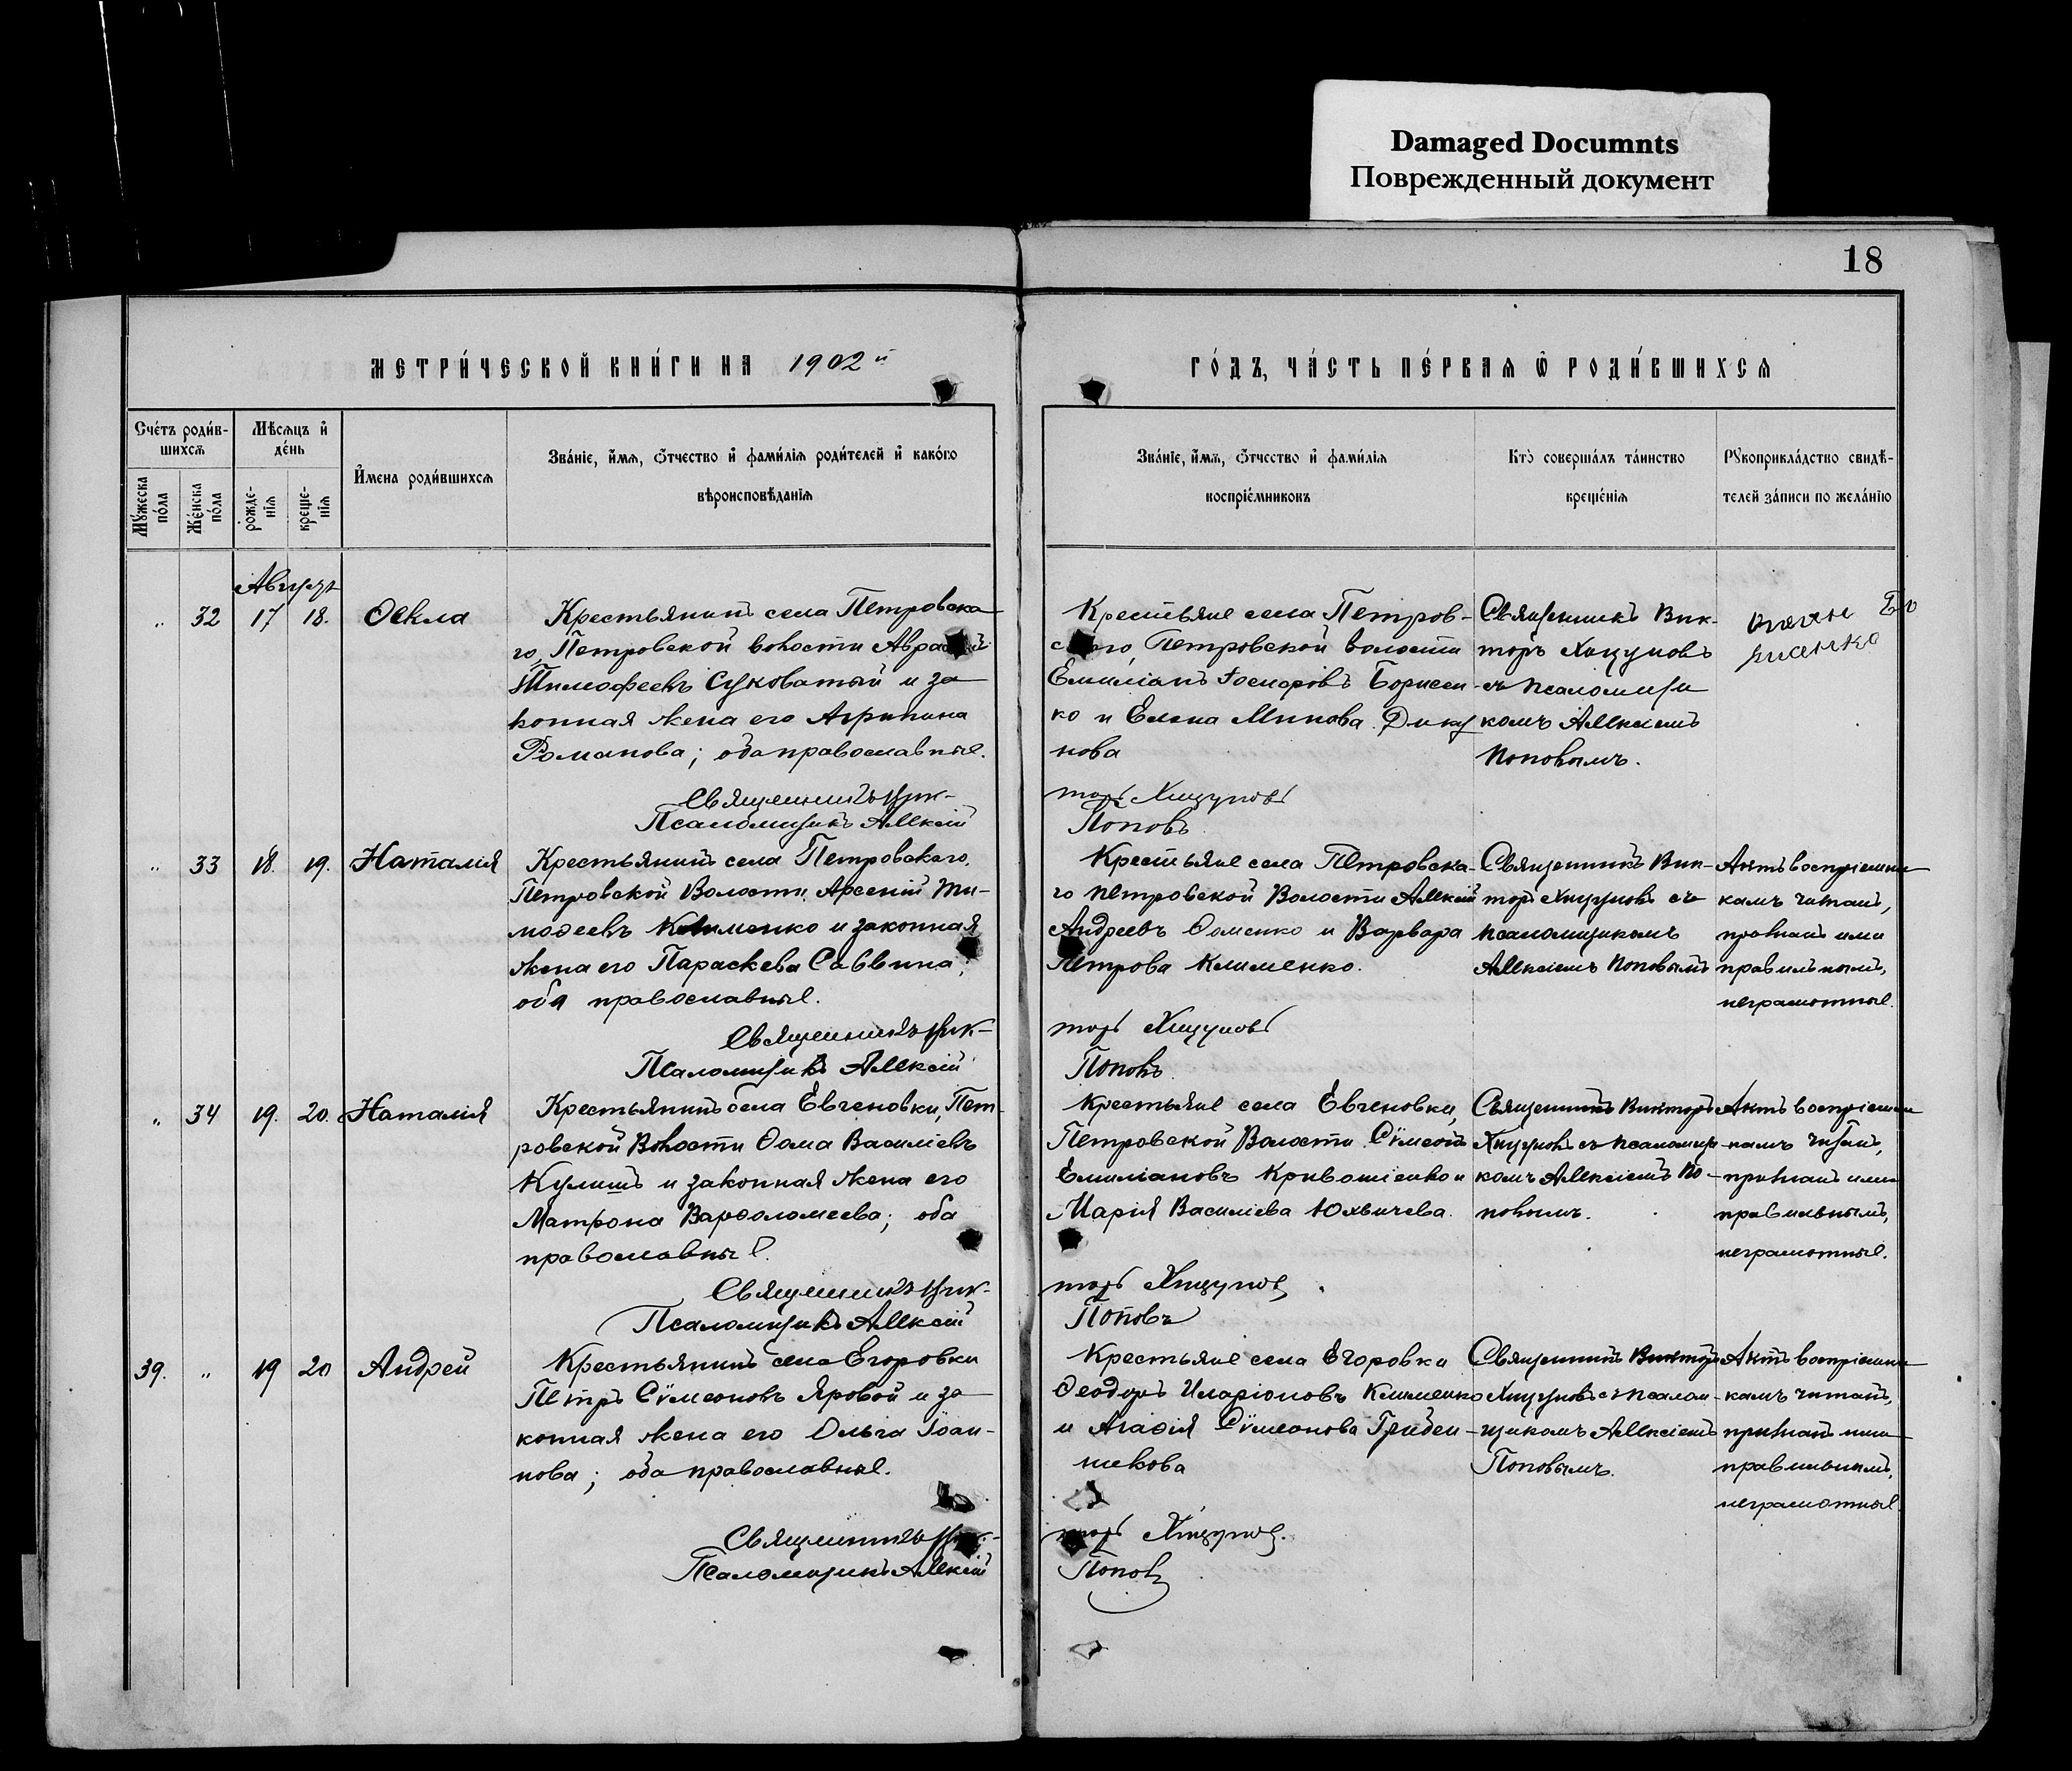 Damaged Documnts
Поврежденный документ
18
МЕТРИ́ЧЕСКОЙ КНИ́ГИ НА 1902й
ГО́ДЪ, ЧА́СТЬ ПЕ́РВАЯ Ѡ РОДИ́ВШИХСЯ
Сче́тъ роди́в-
шихся
Мѣсяцъ и
де́нь
Мꙋжеска по́ла
Же́нска по́ла
рожде-
нія
креще-
нія
Имена роди́вшихся
Зва́ніе, имя, ѻтчество и фами́лія роди́телей и како́го
вѣроисповѣданія
Зва́ніе, имя, ѻтчество и фами́лія
воспріе́мниковъ
Кто̀ соверша́лъ та́инство
креще́нія
Рꙋкоприкла́дство свидѣ-
телей за́писи по жела́нію
Августъ
„ 32 17 18. Ѳекла
Крестьянинъ села Петровска
го, Петровской волости
Тимофеевъ Суковатый и за
конная жена его Агрипина
Романова; оба православные.
Священникъ Вик-
Псаломщикъ Алексій
Крестьяне села Петров-
ского, Петровской волости
Емиліанъ Борисен-
ко и Елена Минова
нова
торъ Хицуновъ
Поповъ
Священникъ Вик-
торъ Хицуновъ
съ псаломщи
комъ Алексіемъ
Поповымъ.
„ 33 18. 19. Наталія
Крестьянинъ села Петровскаго,
Петровской Волости, Арсеній Ти-
моѳеевъ Клименко и законная
жена его Параскева Саввина;
оба православные.
Священникъ Вик-
Псаломщикъ Алексій
Крестьяне села Петровска-
го Петровской Волости Алексій
Андреевъ Ѳоменко и Варвара
Петрова Клименко.
торъ Хицуновъ
Поповъ
Священникъ Вик-
торъ Хицуновъ съ
псаломщикомъ
Алексіемъ Поповымъ
Актъ воспріемни
камъ читанъ,
признанъ ими
правильнымъ,
неграмотные.
„ 34 19. 20. Наталія
Крестьянинъ села Евгеновки, Пет-
ровской Волости Ѳома Василіевъ
Кулишъ и законная жена его
Матрона Варѳоломеева; оба
православные.
Священникъ Вик-
Псаломщикъ Алексій
Крестьяне села Евгеновки,
Петровской Волости Сѵмеонъ
Емиліановъ Кривошіенко и
Марія Василіева
торъ Хицуновъ
Поповъ
Священникъ Викторъ
Хицуновъ съ псаломщи
комъ Алексіемъ По-
повымъ.
Актъ воспріемни
камъ читанъ,
признанъ ими
правильнымъ,
неграмотные.
39. „ 19 20 Андрей
Крестьянинъ села Егоровки
Петръ Сѵмеоновъ Яровой и за
конная жена его Ольга Іоан-
нова; оба православные.
Священникъ Вик-
Псаломщикъ Алексій
Крестьяне села Егоровки
Ѳеодоръ Иларіоновъ Клименко
и Агаѳія Сѵмеонова Гребен-
шекова
торъ Хицуновъ.
Поповъ
Священникъ Викторъ
Хицуновъ съ псалом-
щикомъ Алексіемъ
Поповымъ.
Актъ воспріемни
камъ читанъ,
признанъ ими
правильнымъ,
неграмотные.